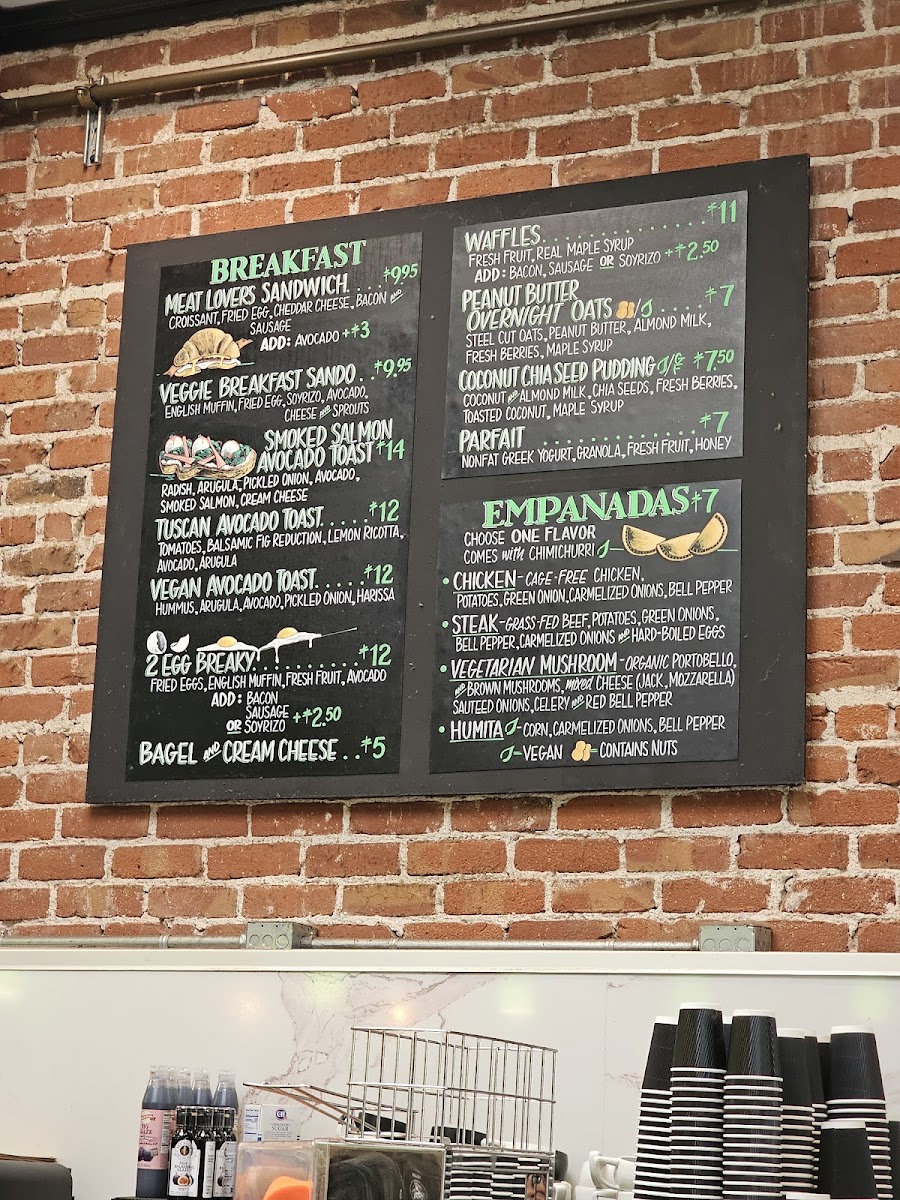 BREAKFAST
MEAT LOVERS SANDWICH....$9.95
CROISSANT, FRIED EGG, CHEDDAR CHEESE, BACON AND
SAUSAGE
ADD: AVOCADO +$3
VEGGIE BREAKFAST SANDO..$9.95
ENGLISH MUFFIN, FRIED EGG, SOYRIZO, AVOCADO,
CHEESE AND SPROUTS
SMOKED SALMON
AVOCADO TOAST $14
RADISH, ARUGULA, PICKLED ONION, AVOCADO,
SMOKED SALMON, CREAM CHEESE
TUSCAN AVOCADO TOAST.....$12
TOMATOES, BALSAMIC FIG REDUCTION, LEMON RICOTTA,
AVOCADO, ARUGULA
VEGAN AVOCADO TOAST.....$12
HUMMUS, ARUGULA, AVOCADO, PICKLED ONION, HARISSA
2 EGG BREAKY..........$12
FRIED EGGS, ENGLISH MUFFIN, FRESH FRUIT, AVOCADO
ADD: BACON
SAUSAGE
OR SOYRIZO +$2.50
BAGEL AND CREAM CHEESE..$5
WAFFLES..............$11
FRESH FRUIT, REAL MAPLE SYRUP
ADD: BACON, SAUSAGE OR SOYRIZO +$2.50
PEANUT BUTTER
OVERNIGHT OATS / ......$7
STEEL CUT OATS, PEANUT BUTTER, ALMOND MILK,
FRESH BERRIES, MAPLE SYRUP
COCONUT CHIA SEED PUDDING /GF $7.50
COCONUT AND ALMOND MILK, CHIA SEEDS, FRESH BERRIES,
TOASTED COCONUT, MAPLE SYRUP
PARFAIT ..............$7
NONFAT GREEK YOGURT, GRANOLA, FRESH FRUIT, HONEY
EMPANADAS $7
CHOOSE ONE FLAVOR
COMES with CHIMICHURRI
• CHICKEN - CAGE-FREE CHICKEN,
POTATOES, GREEN ONION, CARMELIZED ONIONS, BELL PEPPER
• STEAK - GRASS-FED BEEF, POTATOES, GREEN ONIONS,
BELL PEPPER, CARMELIZED ONIONS AND HARD-BOILED EGGS
• VEGETARIAN MUSHROOM - ORGANIC PORTOBELLO,
AND BROWN MUSHROOMS, mixed CHEESE (JACK, MOZZARELLA)
SAUTEED ONIONS, CELERY AND RED BELL PEPPER
• HUMITA - CORN, CARMELIZED ONIONS, BELL PEPPER
- VEGAN - CONTAINS NUTS
SUGAR